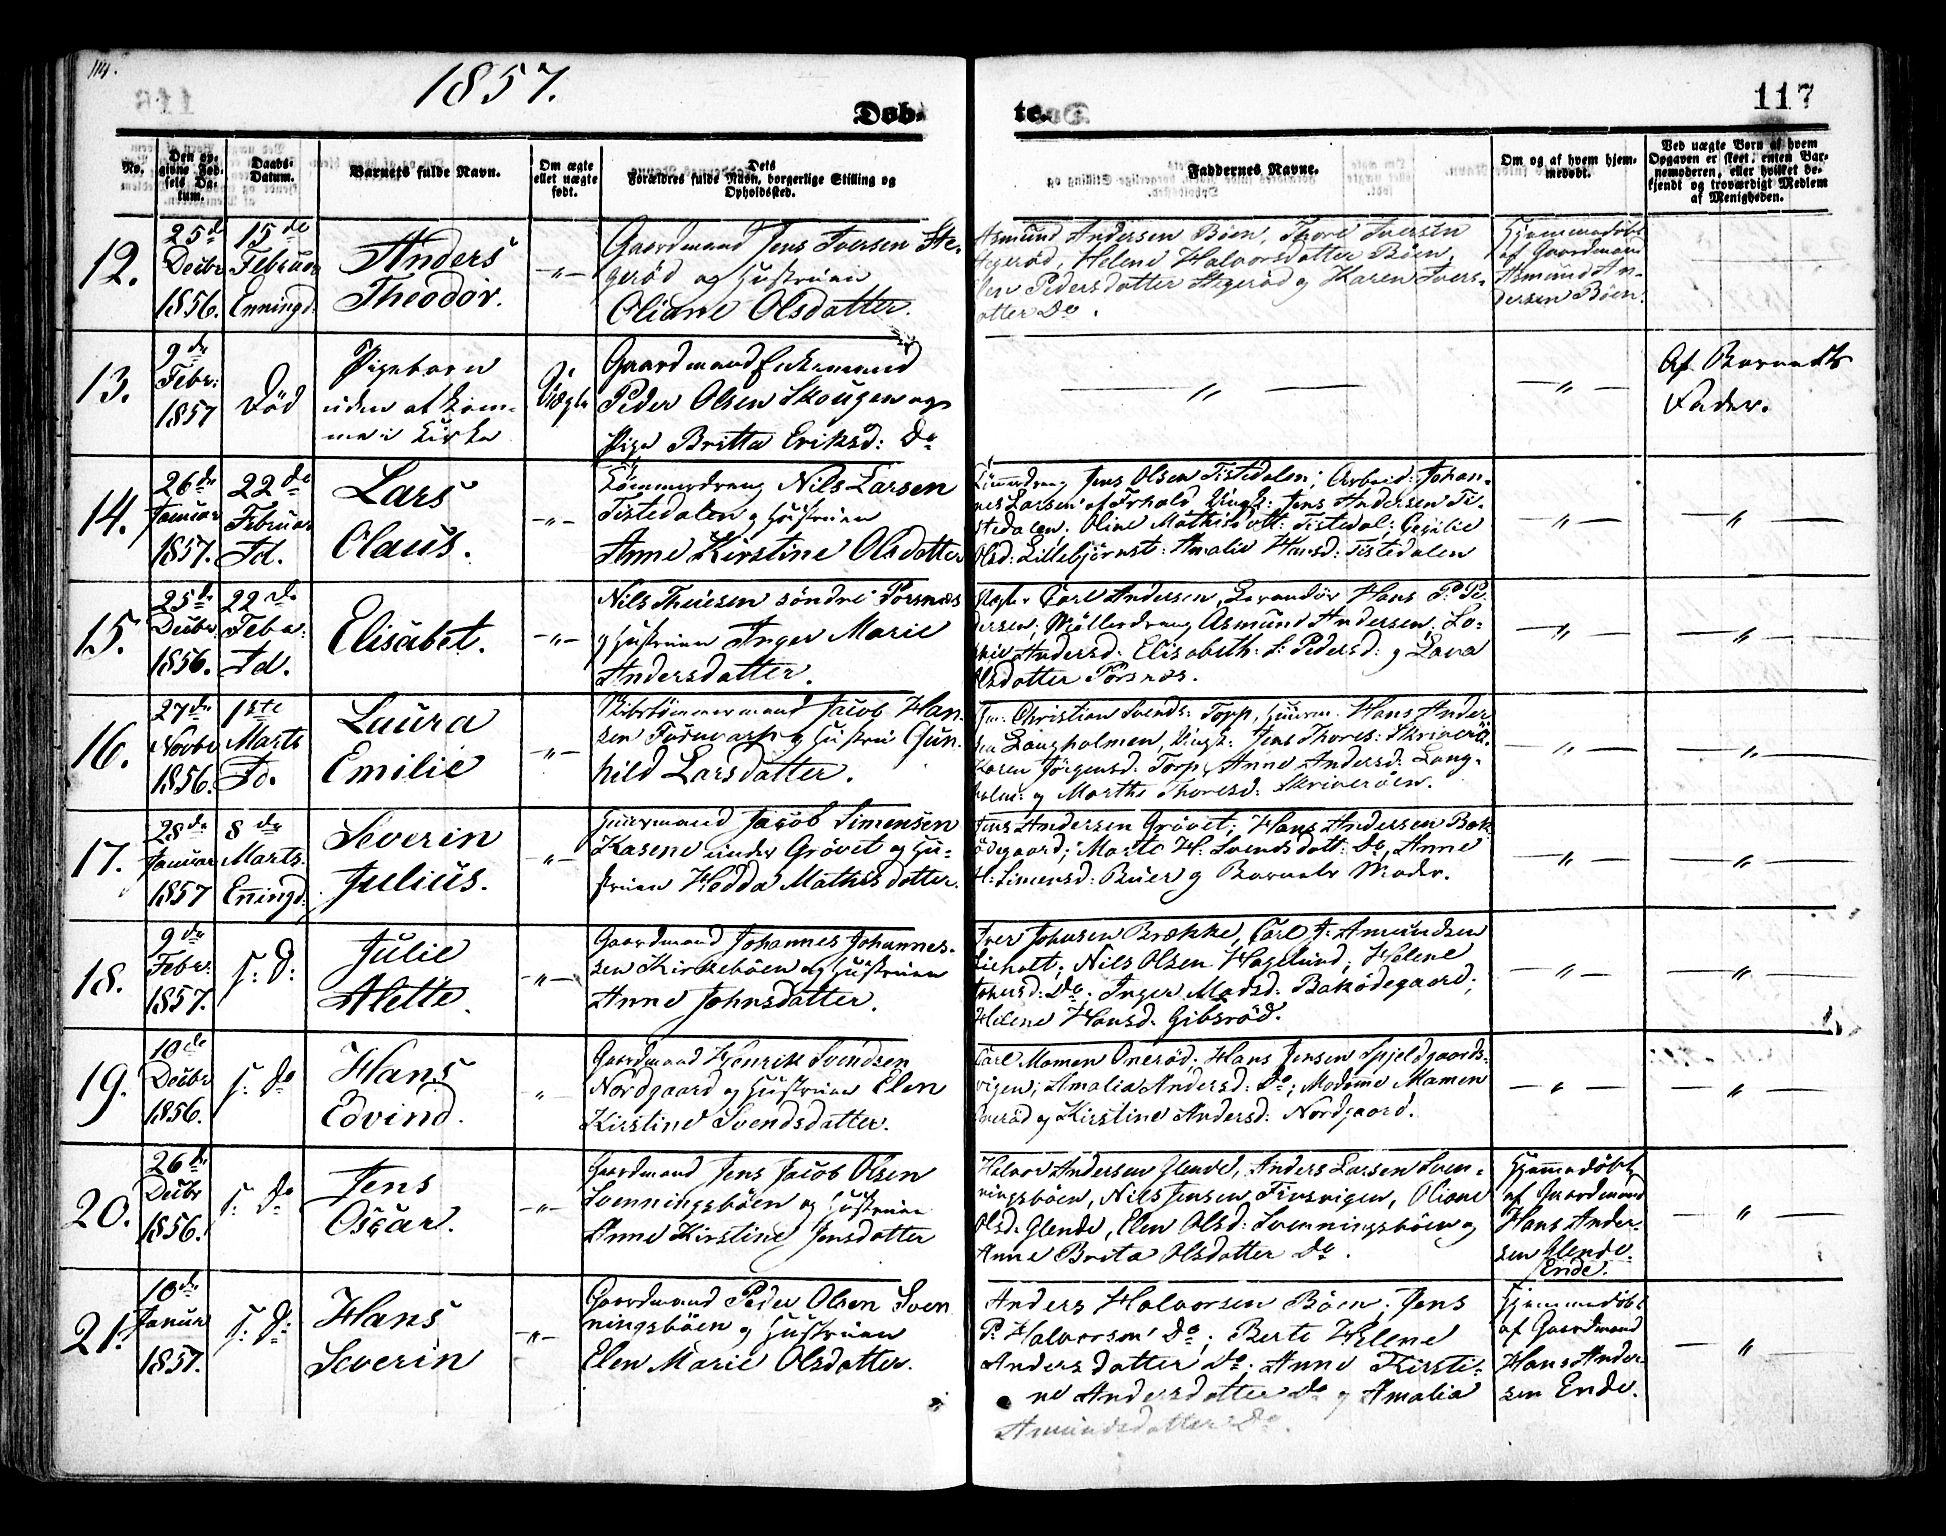 114.
1857.
Døb-
te.
117
No.
Den op-
givne Fød-
sels Da-
tum.
Daabs-
Datum.
Barnets fulde Navn.
Om ægte
eller uægte
født.
Dets
Forældres fulde Navn, borgerlige Stilling og
Opholdssted.
Faddernes Navne.
Om og af hvem hjem-
medøbt.
Ved uægte Børn af hvem
Opgaven er skeet, enten Bar-
nemoderen, eller hvilket be-
kjendt og troværdigt Medlem
af Menigheden.
12.
25d
Decbr
1856.
15de
Februar
Enningd.
Anders
Theodor.
—„—
Gaardmand Jens Iversen Ste-
gerød og Hustruen
Oliane Olsdatter.
Asmund Andersen Böen, Thore Iversen
Stegerød, Helene Halvorsdatter Böen,
Pedersdatter Stegerød og Karen Ivers-
datter Do.
Hjemmedøbt
af Gaardmand
Asmund An-
dersen Böen.
13.
9de
Febr:
1857
Død
Pigebarn
uden at kom-
me i Kirke
Uægte
Gaardmand Enkemand
Peder Olsen Skougen og
Pige Britta Eriksd: Do
— „ —
— „ —
Af Barnets
Fader.
14.
26de
Januar
1857.
22de
Februar
Id.
Lars
Olaus.
—„—
Tömmerdreng Nils Larsen
Tistedalen og Hustruen
Anne Kirstine Olsdatter
Tömmerdreng Jens Olsen Tistedalen; Arbeid: Johan-
nes Larsen af Frhald Ungk: Jens Andersen Ti-
stedalen; Oline Mathisdatt: Tistedal; Cecilie
Olsd: Lillebjörnst: Amalie Hansd: Tistedalen
— „ —
— „ —
15.
25de
Decbr
1856.
22de
Feba:
Id.
Elisabet.
—„—
Nils Theiesen söndre Porsnæs
og Hustruen Inger Marie
Andersdatter.
Carl Andersen, Hans P: Pe-
dersen, Möllerdreng Asmund Andersen; Lo-
vise Andersd: Elisabeth: S: Pedersd: og Lava
Olsdatter Porsnæs.
— „ —
— „ —
16.
27de
Novbr
1856.
1ste
Marts
Id.
Laura
Emilie
—„—
Skibstömmermand Jacob Han-
sen og Hustru Gun-
hild Larsdatter.
Christian Svends: Torp, Huusm. Hans Ander-
sen Langholmen, Ungk: Jens Thores: Skriveröe.
Karen Jörgensd: Torp, Anne Andersd: Lang-
holm: og Marthe Thoresd: Skriveröen.
— „ —
— „ —
17.
28de
Januar
1857
8de
Marts.
Enningd.
Severin
Julius.
—„—
Huusmand Jacob Simensen
Kasene under Grövet og Hu-
struen Hedda Mathisdatter.
Jens Andersen Grövet; Hans Andersen Bak-
ödegaard; Marte H: Svendsdatt: Do, Anne
H: Simensd: Buer og Barnets Moder.
— „ —
— „ —
18.
9de
Febr:
1857.
s: D:
Julie
Alette.
—„—
Gaardmand Johannes Johannes-
sen Kirkebøen og Hustruen
Anne Johnsdatter.
Iver Johnsen Brække, Carl J: Amundsen
Lieholt; Nils Olsen Hagelund; Helene
Johnsd: Do; Inger Madsd: Baködegaard;
Helene Hansd: Gibsröd.
— „ —
— „ —
19.
10de
Decbr
1856.
s: Do
Hans
Edvind.
„
Gaardmand Henrik Svendsen
Nordgaard og Hustruen Elen
Kirstine Svendsdatter.
Carl Mamen Oneröd; Hans Jensen Spjeldgaards-
vigen; Amalia Andersd: Do; Madame Mamen
Oneröd og Kirstine Andersd: Nordgaard.
— „ —
— „ —
20.
26de
Decbr
1856.
s: Do
Jens
Oscar.
—„—
Gaardmand Jens Jacob Olsen
Svenningsböen og Hustruen
Anne Kirstine Jensdatter
Halvor Andersen Glende, Anders Larsen Sven-
ningsböen, Nils Jensen, Oliane
Olsd. Glende, Elen Olsd: Svenningsböen og
Anne Brita Olsdatter Do.
Hjemmedøbt
af Gaardmand
Hans Ander-
sen Glende.
Ende.
— „ —
21.
10de
Januar
1857.
s: D:
Hans
Severin
—„—
Gaardmand Peder Olsen Sven
ningsböen og Hustruen
Elen Marie Olsdatter.
Anders Halvorsen Böen; Jens
P: Halvorsen Do; Berte Helene
Andersdatter Do; Anne Kirsti-
ne Andersdatter Do og Amalia
Amundsdatter Do.
Hjemmedøbt
af Gaardmand
Hans Ander-
sen Ende.
— „ —